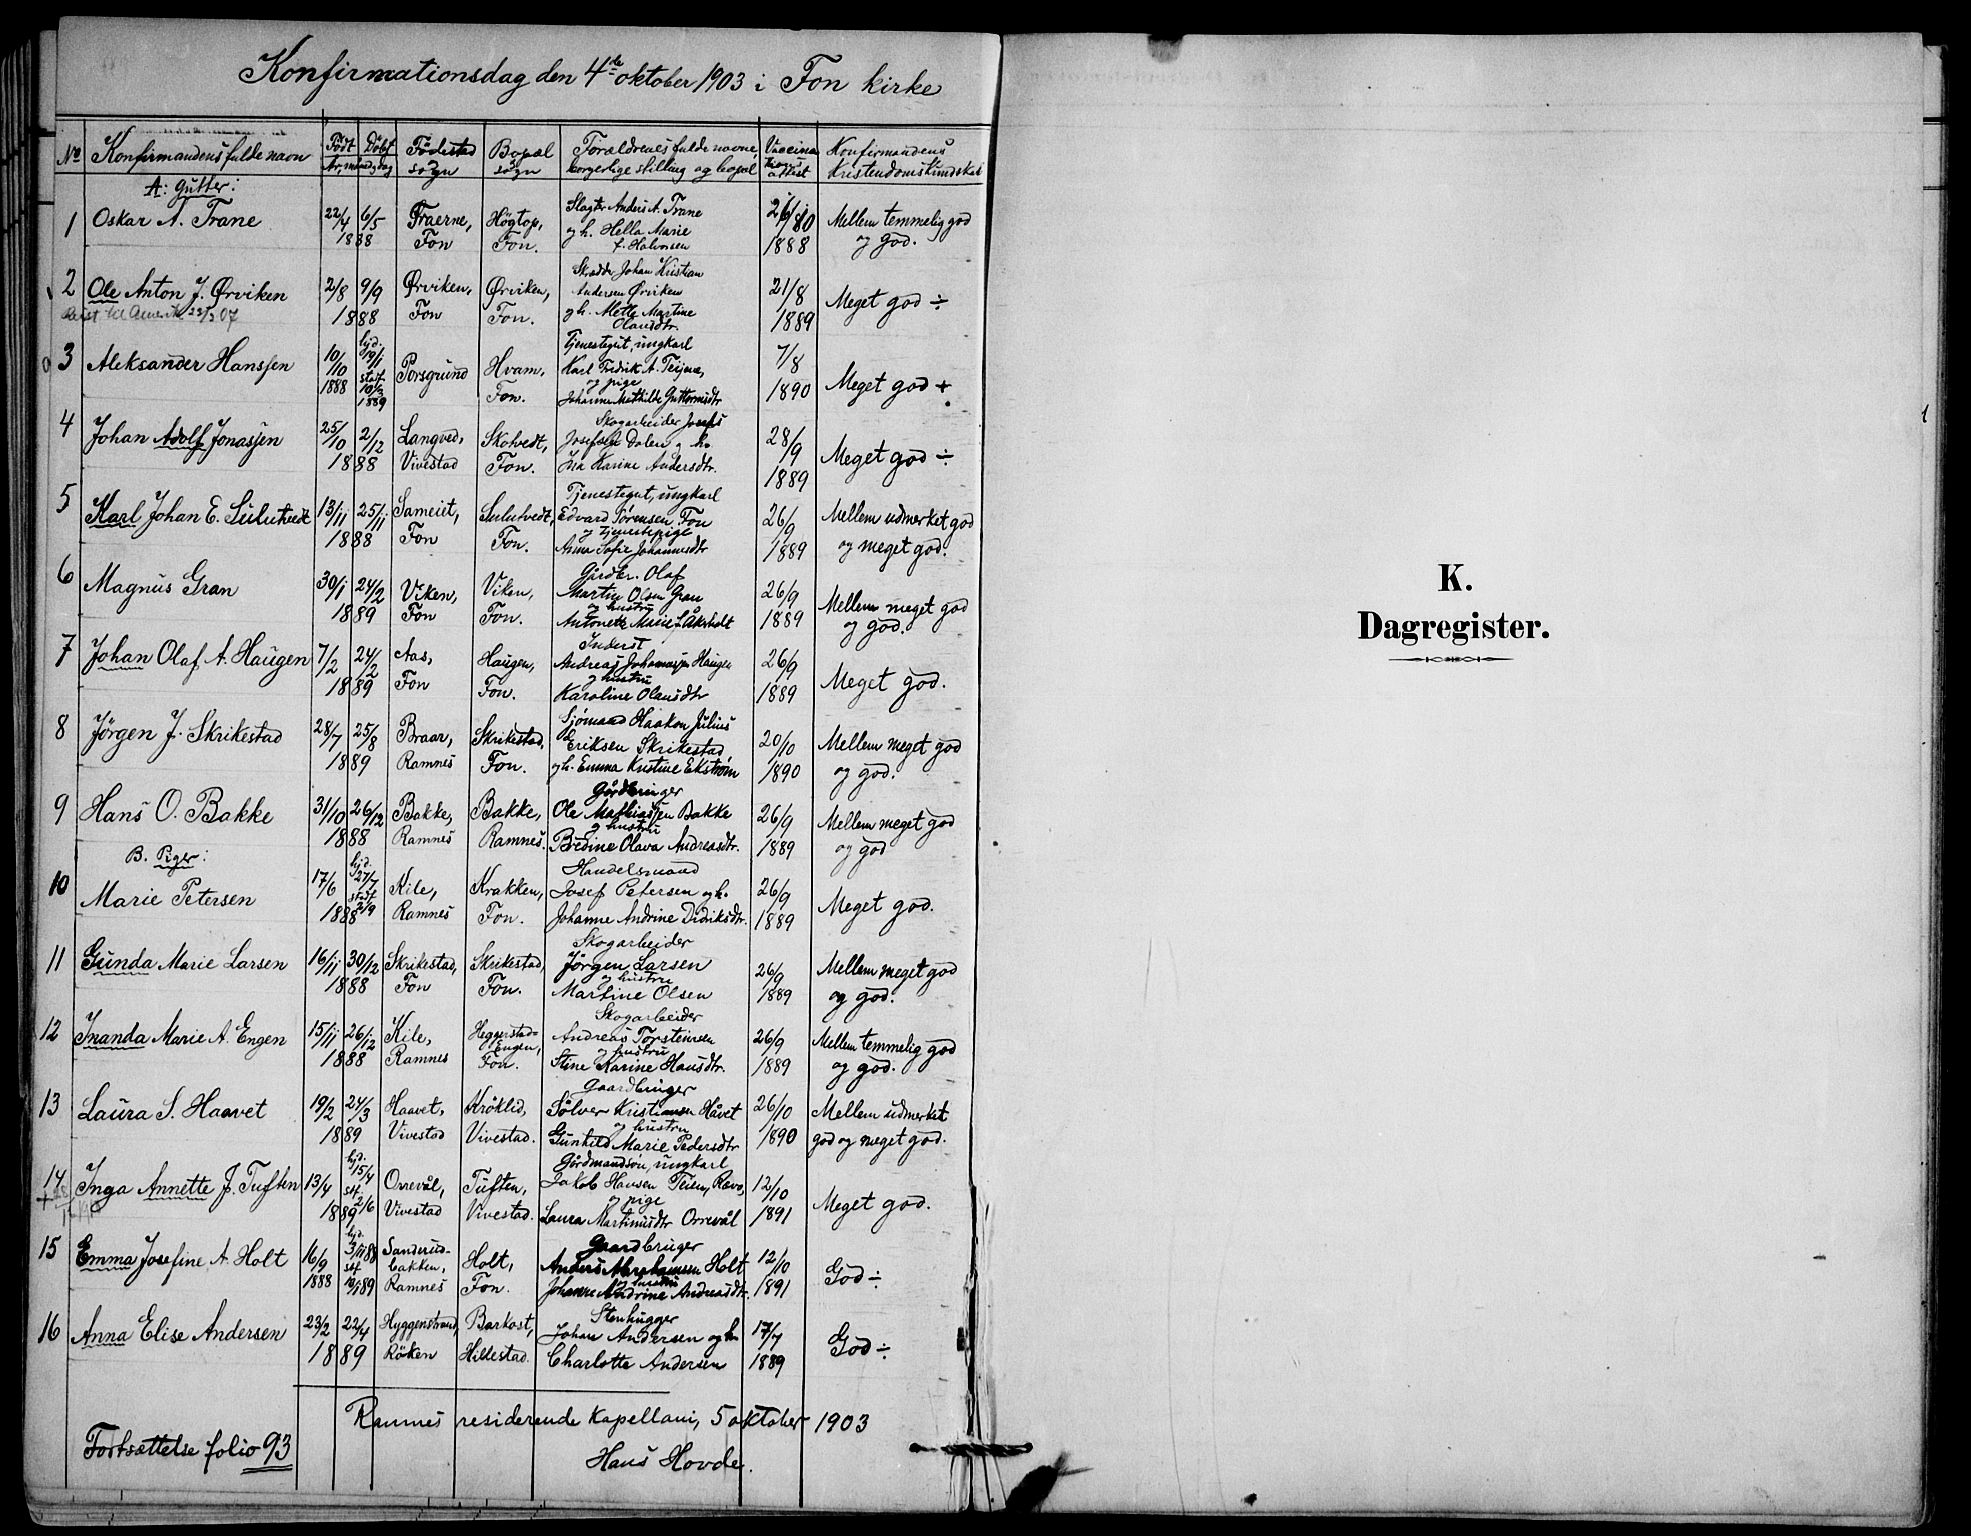 Konfirmationsdag den 4de oktober 1903 i Fon kirke
No Konfirmandens fulde navn Födt Döbt År, måned, dag Födestad sogn Bopæl sogn Forældrenes fulde navne, borgerlige stilling og bopæl Vaccina attest Konfirmandens Kristendomskundskab
A: Gutter:
1 Oskar A. Trane 22/4 6/5 1888 Fon Högtop, Fon. Slagter Anders A. Trane og h. Hella Marie f. Halvorsen 1888 Mellem temmelig god og god.
2 Ole Anton J. Ørviken 2/8 9/9 1888 Ørviken, Fon Ørviken, Fon. Skrædder Johan Kristian Andersen Ørviken og h. Mette Martine Olausdtr. 21/8 1889 Meget god ÷
3 Aleksander Hansen 10/10 1888 hjd. 19/1 stadf. 10/3 1889 Porsgrund Hvam, Fon. Tjenestegut, ungkarl Karl Fredrik A. og pige Johanne Mathilde Guttormsdtr 7/8 1890 Meget god +
4 Johan Adolf Jonassen 25/10 2/12 1888 Langved, Vivestad Skotvedt, Fon. Skogarbeider Josefsen Dalen og h. Karine Andersdtr. 28/9 1889 Meget god ÷
5 Karl Johan E. Sulutvedt 13/11 25/11 1888 Sameiet, Fon Sulutvedt, Fon. Tjenestegut, ungkarl Edvard Sørensen, Fon og tjenestepige Anna Sofie Johannesdtr 26/9 1889 Mellem udmerket god og meget god.
6 Magnus Gran 30/1 24/2 1889 Viken, Fon Viken, Fon. Gårdbr. Olaf Martin Olsen Gran og hustru Antonette Marie 26/9 1889 Mellem meget god og god.
7 Johan Olaf A. Haugen 7/2 24/2 1889 Aas, Fon Haugen, Fon. Inderst Andreas Johannesen Haugen og hustru Karoline Olausdtr 26/9 1889 Meget god.
8 Jörgen J. Skrikestad 28/7 25/8 1889 Braar, Ramnes Skrikestad, Fon. Sjømand Haakon Julius Eriksen Skrikestad og h. Emma Kristine Ekstrøm 20/10 1890 Mellem meget god og god.
9 Hans O. Bakke 31/10 26/12 1888 Bakke, Ramnes Bakke, Ramnes. Gårdbruger Ole Mathiassen Bakke og hustru Bredine Olava Andreasdtr. 26/9 1889 Mellem meget god og god
B. Piger:
10 Marie Petersen 17/6 hjd. 27/7 stadf. 2/9 1888 Kile, Ramnes Krakken, Fon. Handelsmand Josef Petersen og h. Johanne Andrine Didriksdtr. 26/9 1889 Meget god.
11 Gunda Marie Larsen 16/11 30/12 1888 Skrikestad, Fon Skrikestad, Fon. Skogarbeider Jörgen Larsen og hustru Martine Olsen 26/9 1889 Mellem meget god og god.
12 Inanda Marie A. Engen 15/11 26/12 1888 Kile, Ramnes Heggerstad-Engen, Fon. Skogarbeider Andreas Torsteinsen og hustru Stine Karine Hansdtr. 26/9 1889 Mellem temmelig god og god.
13 Laura S. Haavet 19/2 24/3 1889 Haavet, Vivestad Kröklid, Vivestad. Gaardbruger Sølver Kristiansen Håvet og hustru Gunhild Marie Pedersdtr 26/10 1890 Mellem udmerket god og meget god.
14 Inga Annette J. Tuften 13/4 hjd. 15/4 stf. 2/6 1889 Orrevål, Vivestad Tuften, Vivestad. Gårdmandsön, ungkarl Jakob Hansen Teien, og pige Laura Martinusdtr Orrevål 12/10 1891 Meget god.
15 Emma Josefine A. Holt 16/9 1888 hjd. 3/11 88 stf. 89 Sanderud-bakken, Ramnes Holt, Fon. Gaardbruger Anders Abrahamsen Holt og hustru Johanne Andrine Andreasdtr. 12/10 1891 God ÷
16 Anna Elise Andersen 23/2 22/4 1889 Hyggenstrand, Röken Barkost, Hillestad. Stenhugger Johan Andersen og h. Charlotte Andersen 17/7 1889 God ÷
Ramnes residerende kapellani, 5 oktober 1903
Hans Hovde.
Fortsættelse folio 93
K.
Dagregister.